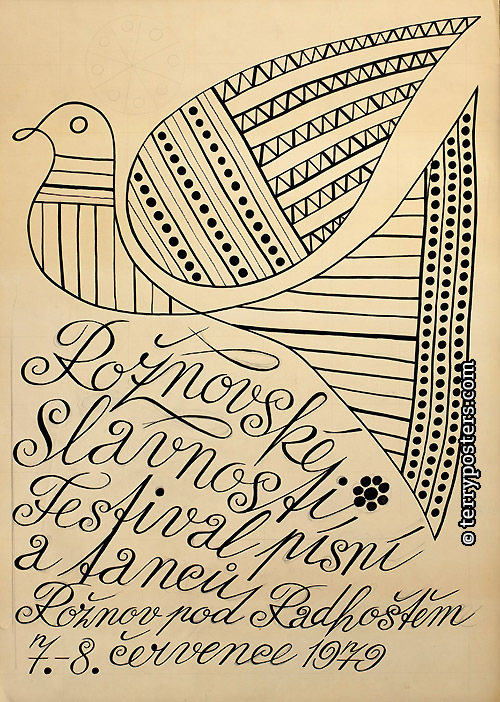 Rožnovské
slavnosti
Festival písní
a tanců
Rožnov pod Radhoštěm
7.-8. července 1979
© terryposters.com